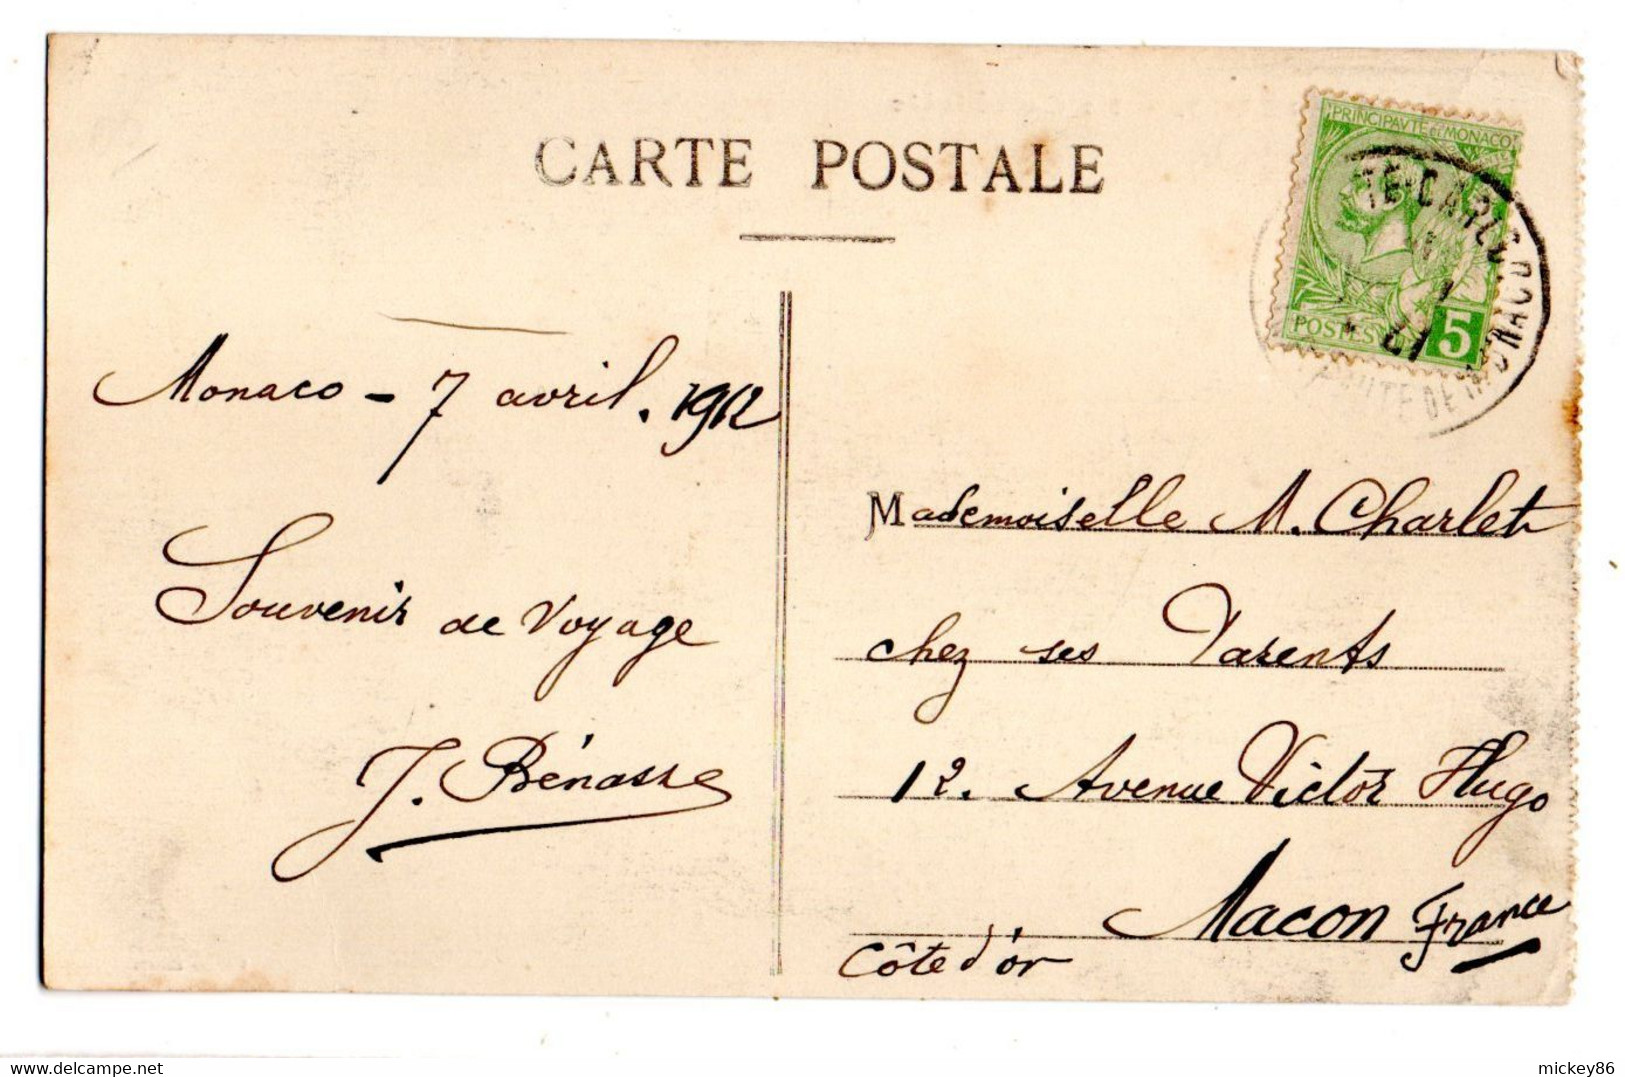 CARTE POSTALE
PRINCIPAVTE DE MONACO
POSTES
5
TE-CARLO
Monaco - 7 avril. 1912
Souvenir de Voyage
J. Bénasse
Mademoiselle M. Charlet
chez ses Parents
12. Avenue Victor Hugo
Macon France
Côte d'or
www.delcampe.net
mickey86